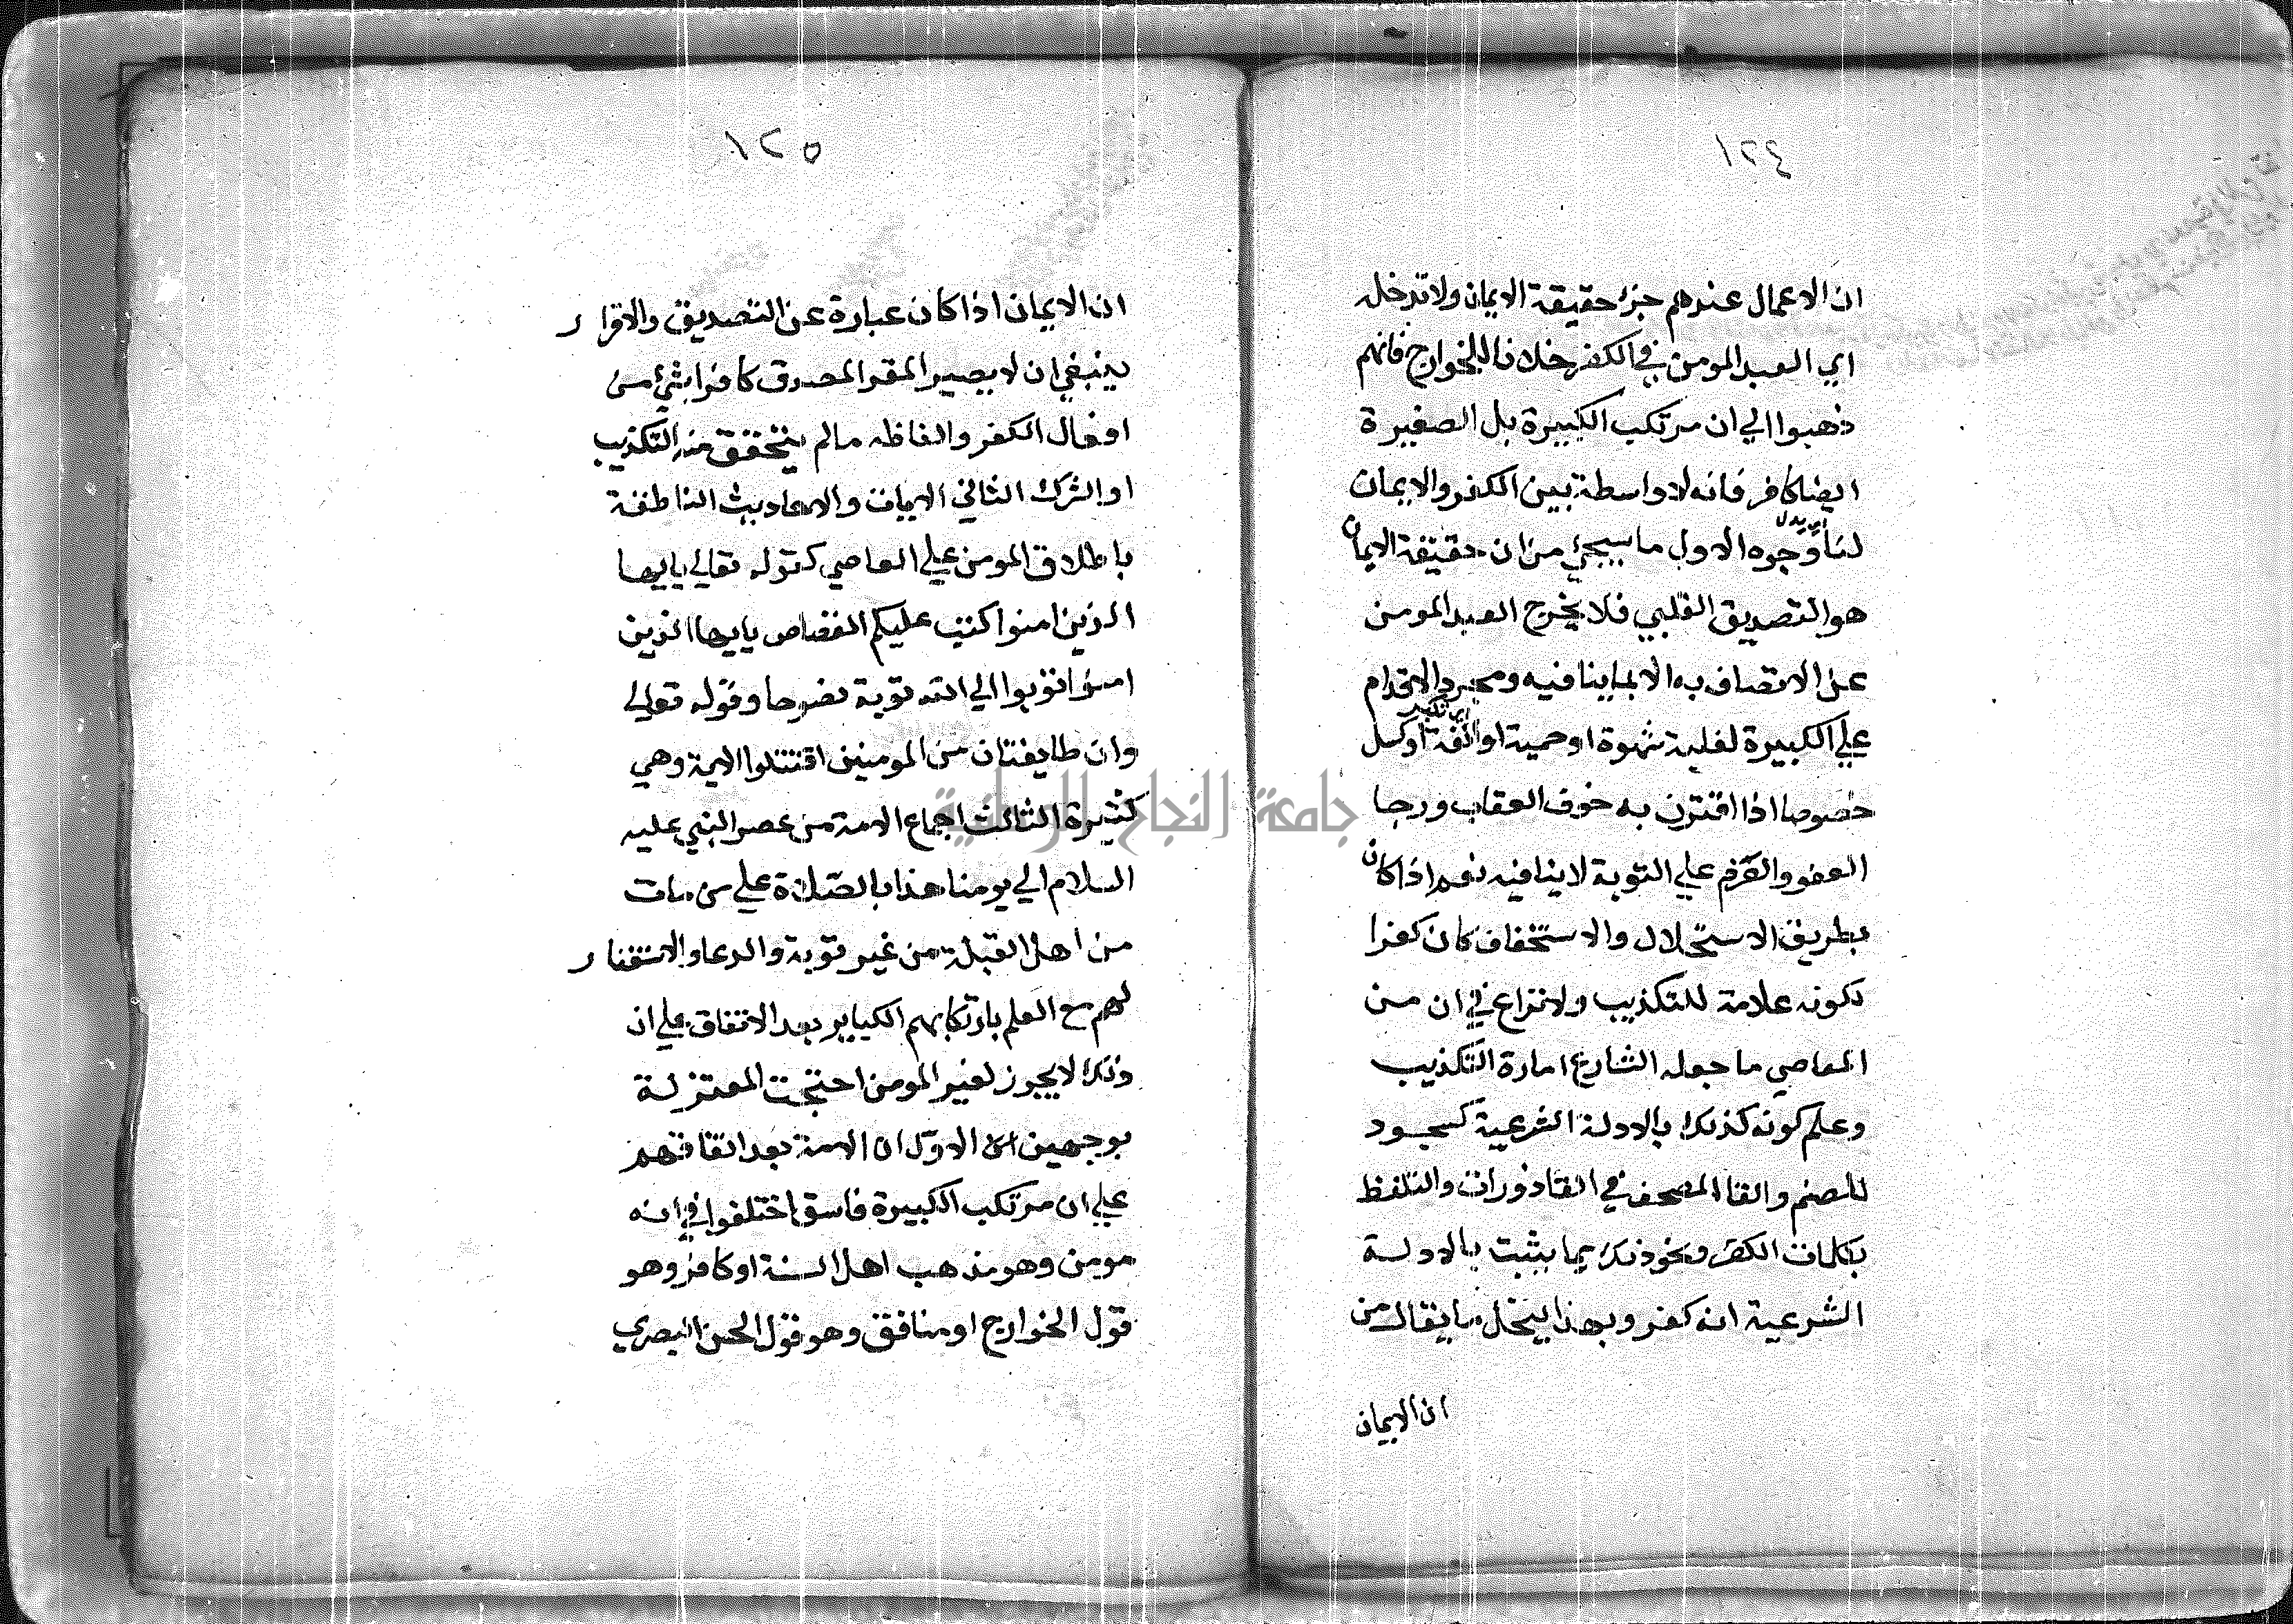 ١٢٤
ان الاعمال عندهم جزء حقيقة الايمان ولا تدخله
اي العبد المومن في الكفر خلافا للخوارج فانهم
ذهبوا الي ان مرتكب الكبيرة بل الصغيرة
ايضا كافر فانه لا واسطة بين الكفر والايمان
لنا وجوه الاول ما سيجئ من ان حقيقة الايمان
هو التصديق القلبي فلا يخرج العبد المومن
عن الاتصاف به الا بما ينافيه ومجرد الاقدام
علي الكبيرة لغلبة شهوة او حمية او انفة او كسل
خصوصا اذا اقترن به خوف العقاب ورجا
العفو والعزم علي التوبة لا ينافيه نعم اذا كان
بطريق الاستحلال والاستخفاف كان كفرا
لكونه علامة للتكذيب ولا نزاع في ان من
المعاصي ما جعله الشارع امارة التكذيب
وعلم كونه كذلك بالادلة الشرعية كسجود
للصنم والقا المصحف في القاذورات والتلفظ
بكلمات الكفر ونحو ذلك مما يثبت بالادلة
الشرعية انه كفر وبهذا ينحل ما يقال من
ان الايمان
١٢٥
ان الايمان اذا كان عبارة عن التصديق والاقرار
ينبغي ان لا يصير المقر المصدق كافرا بشئ من
افعال الكفر والفاظه مالم يتحقق منه التكذيب
او الشرك الثاني الايات والاحاديث الناطقة
باطلاق المومن علي العاصي كقوله تعالي يايها
الذين امنوا كتب عليكم القصاص يايها الذين
امنوا توبوا الي الله توبة نصوحا وقوله تعالي
وان طايفتان من المومنين اقتتلوا الاية وهي
كثيرة الثالث اجماع الامة من عصر النبي عليه
السلام الي يومنا هذا بالصلاة علي من مات
من اهل القبلة من غير توبة والدعا والاستغفار
لهم مع العلم بارتكابهم الكباير بعد الاتفاق علي ان
ذلك لا يجوز لغير المومن احتجت المعتزلة
بوجهين الاول ان الامة بعد اتفاقهم
علي ان مرتكب الكبيرة فاسق اختلفوا في انه
مومن وهو مذهب اهل السنة او كافر وهو
قول الخوارج او منافق وهو قول الحسن البصري
جامعة النجاح الوطنية